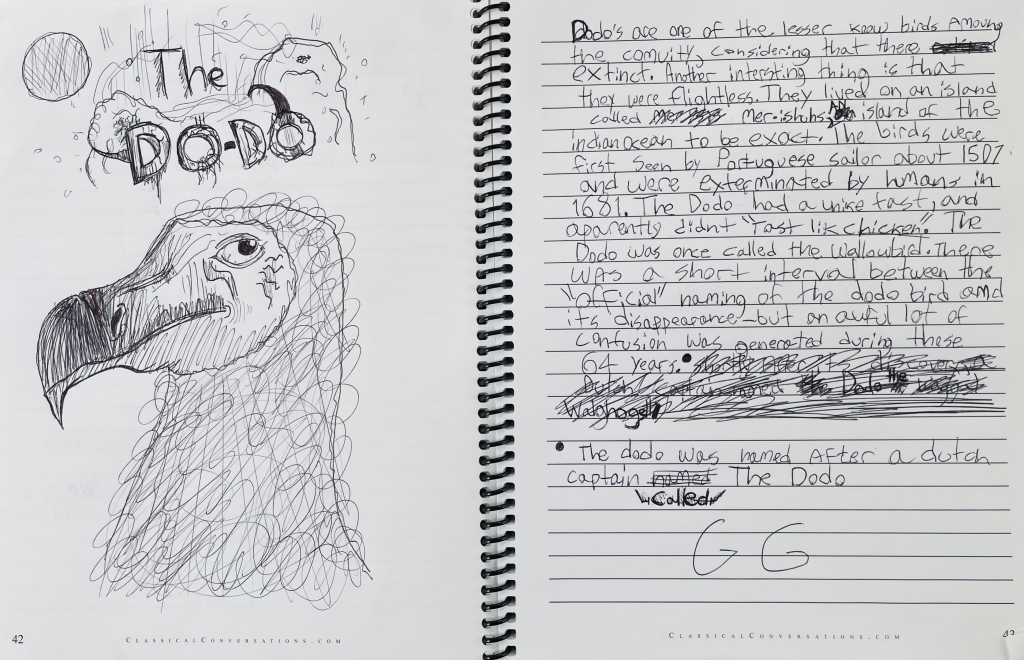 The
DO-DO
42
CLASSICALCONVERSATIONS.COM
Dodo's are one of the lesser know birds Amoung
the comuity considering that there
extinct. Another intersting thing is that
they were flightless. They lived on an island
called Mer-ishuhs, An island of the
indian ocean to be exact. The birds were
first seen by Portuguese sailor about 1507
and were exterminated by humans in
1681. The Dodo had a unike tast, and
aparently didnt "tast lik chicken." The
Dodo was once called the Wallowbird. There
was a short interval between the
"official" naming of the dodo bird and
its disappearance—but an auful lot of
confusion was generated during these
64 years.
the
Dodo
Walghogel
• The dodo was named After a dutch
captain named The Dodo
called
G G
CLASSICALCONVERSATIONS.COM